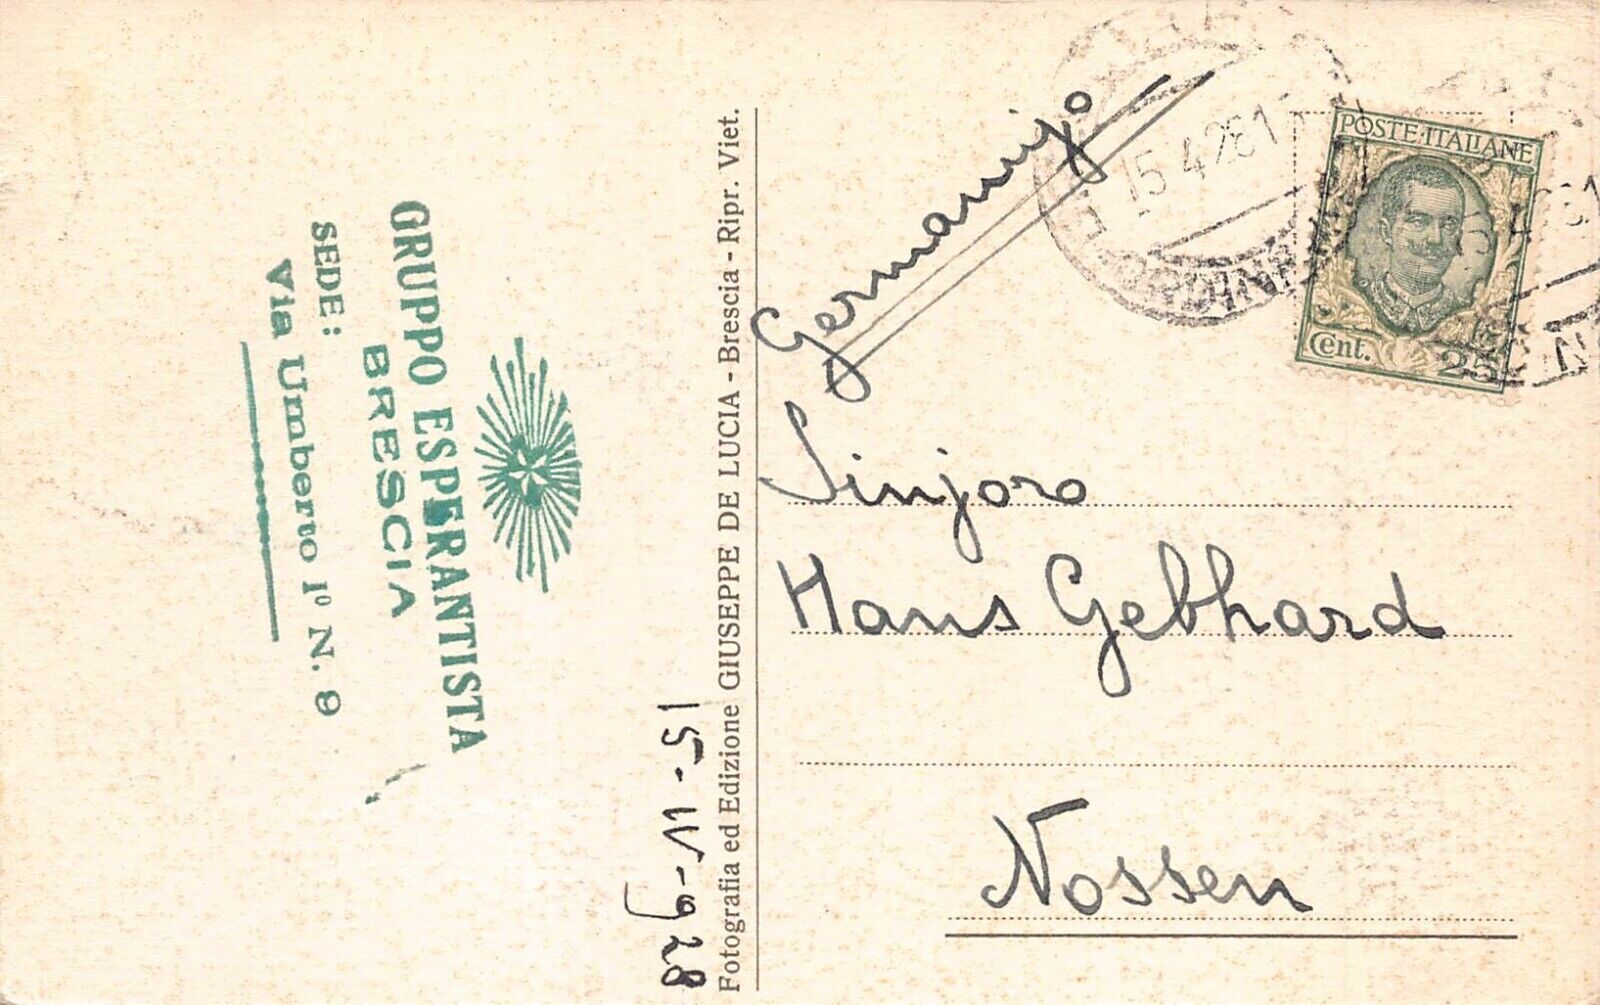 GRUPPO ESPERANTISTA
BRESCIA
SEDE:
Via Umberto Iº N. 9
15-IV-928
Fotografia ed Edizione GIUSEPPE DE LUCIA - Brescia - Ripr. Viet.
15.4.28
POSTE·ITALIANE
Cent. 25
Germanujo
Sinjoro
Hans Gebhard
Nossen